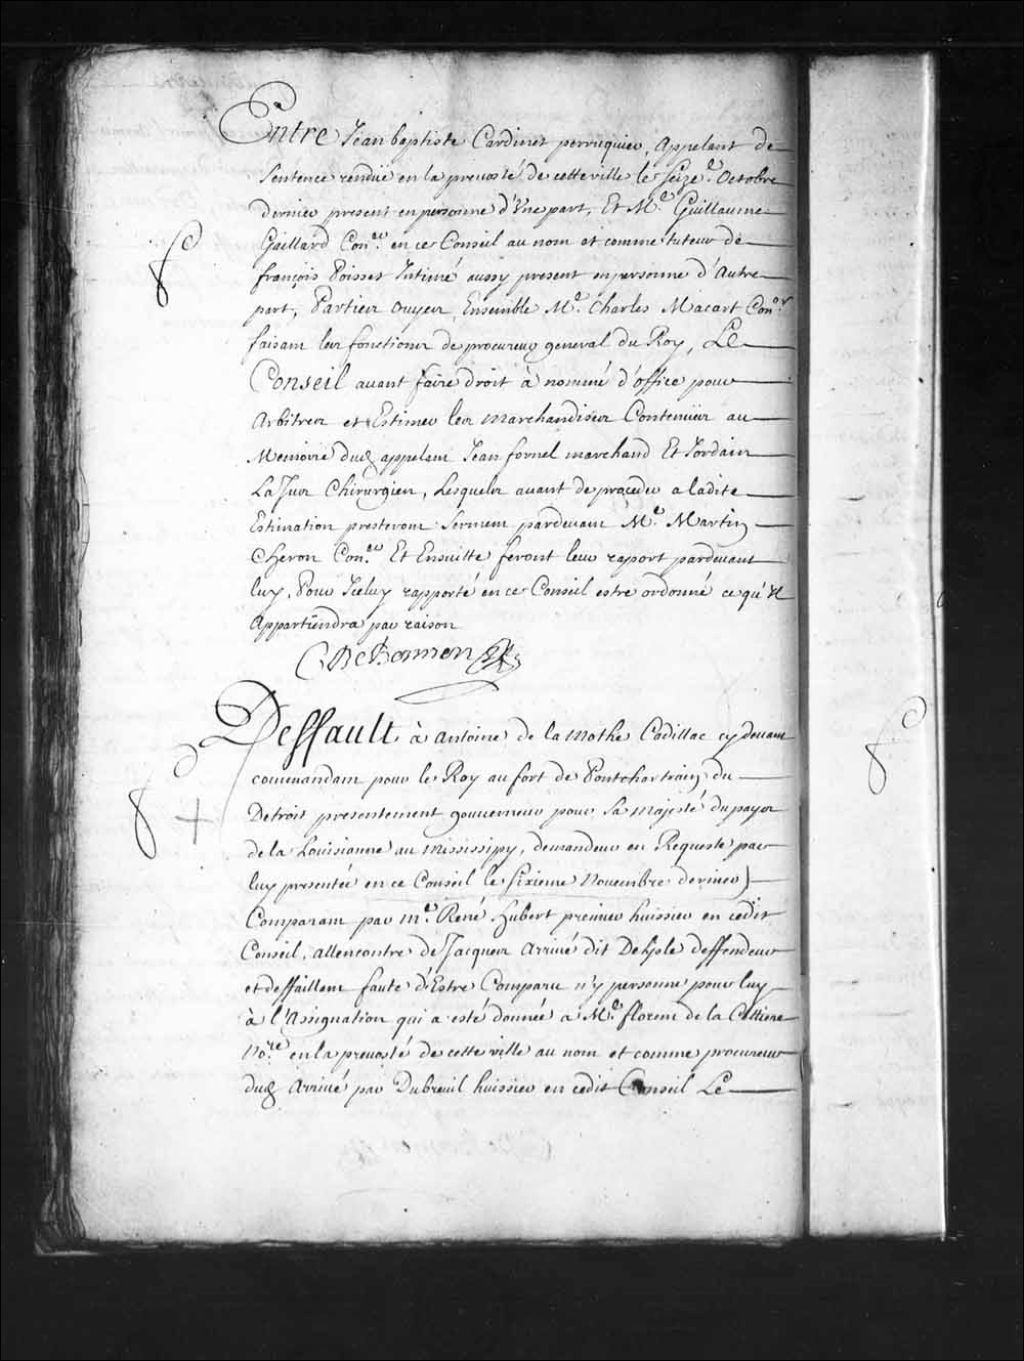 Entre Jean baptiste Cardinet perruquier, Appelant de
Sentence rendüe en la prevosté de cette ville le Seize.e Octobre
dernier present en personne d'Une part, Et M.e Guillaume
Gaillard Con.er en ce Conseil au nom et comme tuteur de
françois Poisset Intimé aussy present en personne d'Autre
part, Parties ouyes, Ensemble M.e Charles Macart Con.er
faisant les fonctions de procureur general du Roy, Le
Conseil avant faire droit à nommé d'office pour
Arbitrer et Estimer les marchandises Contenües au
Memoire dud appelant Jean fornel marchand Et Jordain
LaJus Chirurgien, Lesquels avant de proceder a ladite
Estimation presteront Serment pardevant M.e Martin
Cheron Con.er Et Ensuitte feront leur raport pardevant
luy, Pour Iceluy rapporté en ce Conseil estre ordonné ce qu'Il
Appartiendra par raison
Deffault à Antoine de la Mothe Cadillac cy devant
commandant pour le Roy au fort de Pontchartrain du
Detroit presentement gouverneur pour Sa Majesté du payes
de la Louisianne au Mississipy, demandeur en Requeste par
luy presentée en ce Conseil le Sixieme Novembre dernier)
Comparant par M.e René hubert premier huissier en cedit
Conseil, allencontre de Jacques Arrivé dit Delisle deffendeur
et deffaillant faute d'Estre Comparu n'y personne pour luy
à l'Assignation qui a esté donnée a M.e florent de la Cettiere
No.re en la prevosté de cette ville au nom et comme procureur
dud Arrivé par Dubreuil huissier en cedit Conseil Le